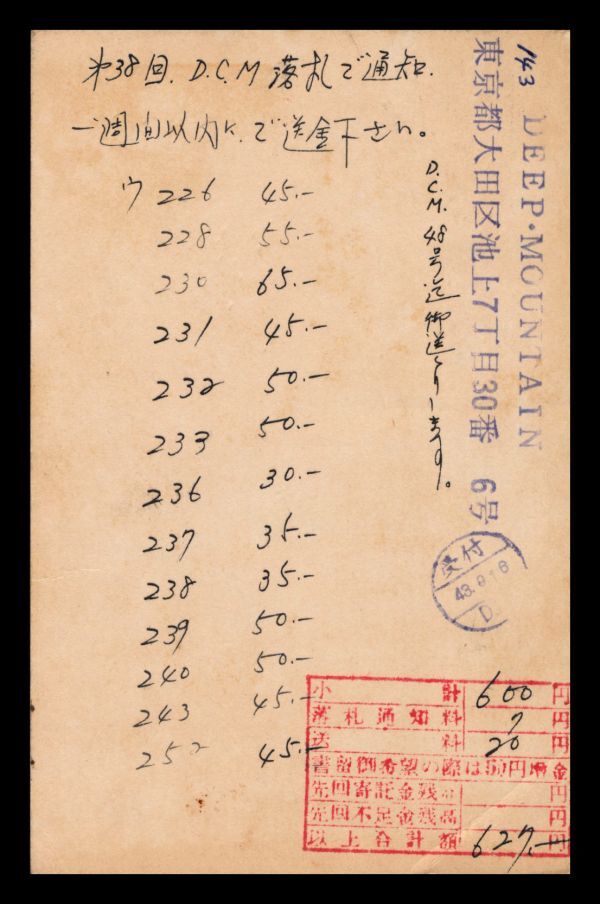 143
DEEP・MOUNTAIN
東京都大田区池上7丁目30番 6号
第38回. D.C.M 落札で通知.
一週間以内に.で送金下さい。
D.C.M. 48号迄御送りします。
ウ 226 45.-
228 55.-
230 65.-
231 45.-
232 50.-
233 50.-
236 30.-
237 35.-
238 35.-
239 50.-
240 50.-
243 45.-
252 45.-
受付
43.9.18
D.
小計 600 円
落札通知料 7 円
送料 20 円
書留御希望の際は50円増金
先回寄託金残高 円
先回不足金残高 円
以上合計額 627.-円